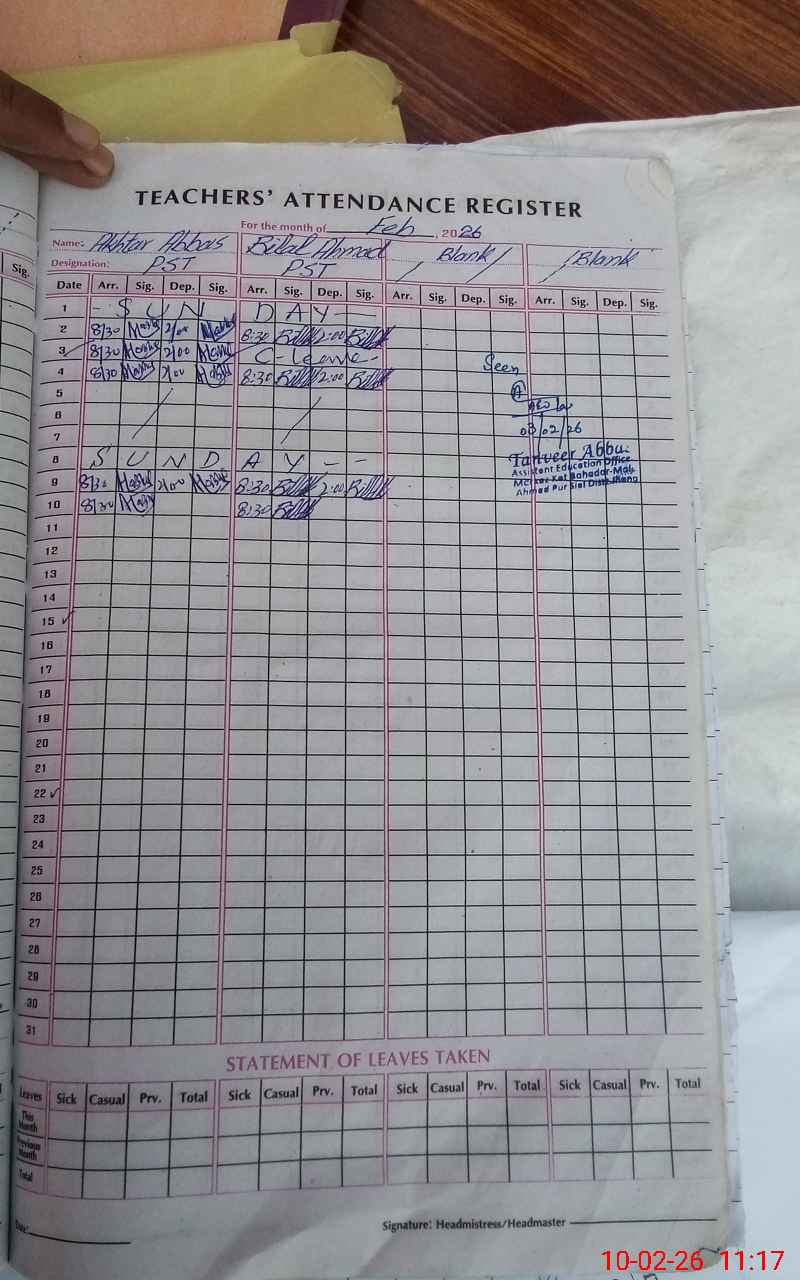 TEACHERS' ATTENDANCE REGISTER
For the month of Feb , 2026
Name: Akhtar Abbas Bilal Ahmad Blank Blank
Designation: PST PST
Sig.
Date Arr. Sig. Dep. Sig. Arr. Sig. Dep. Sig. Arr. Sig. Dep. Sig. Arr. Sig. Dep. Sig.
1 - S U N D A Y -
2 8/30 2/00 8:30 2:00
3 8/30 2/00 C-leave-
4 8/30 2/00 8:30 2:00
Seen
5
6
7
03/02/26
8 S U N D A Y - -
Tanveer Abbas
Assistent Education Office
9 8/30 2/00 8:30 2:00
Ahmed Pur Sial Distt Jhang
10 8/30 8:30
11
12
13
14
15 ✓
16
17
18
19
20
21
22 ✓
23
24
25
26
27
28
29
30
31
STATEMENT OF LEAVES TAKEN
Leaves Sick Casual Prv. Total Sick Casual Prv. Total Sick Casual Prv. Total Sick Casual Prv. Total
This Month
Previous Month
Total
Date:
Signature: Headmistress/Headmaster
10-02-26 11:17